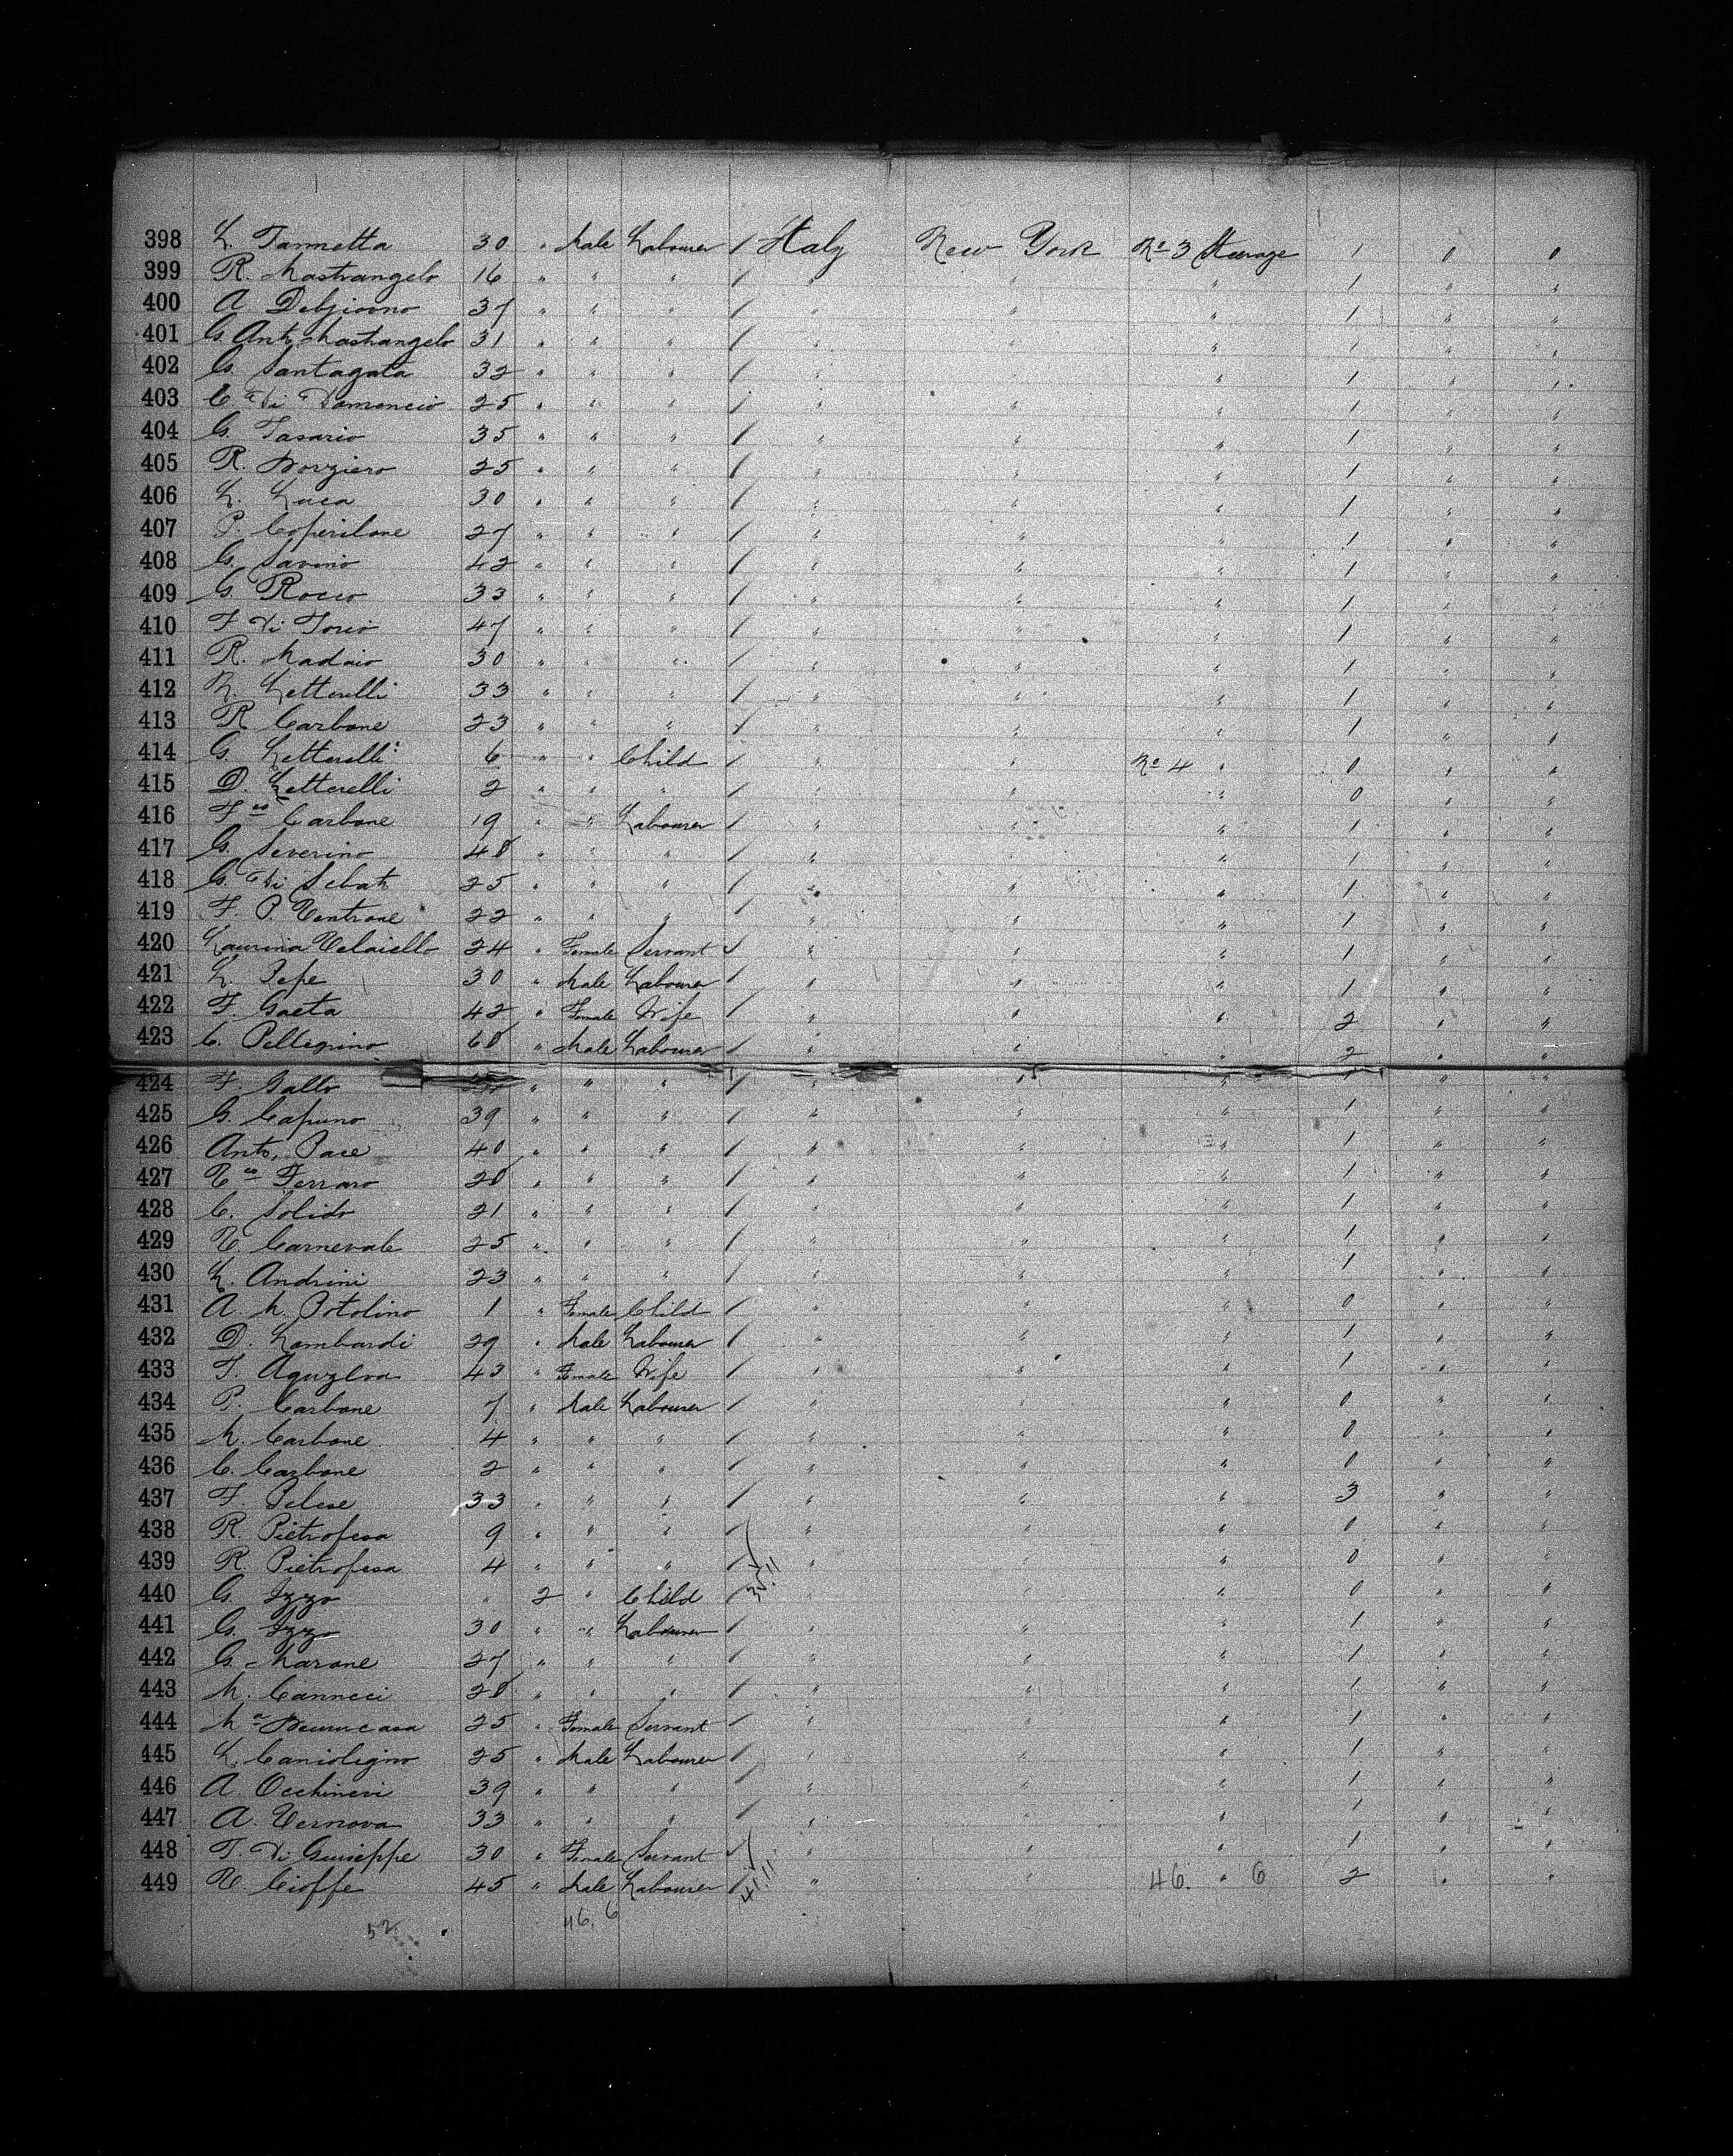 398 L. Iannetta 30 " Male Labourer / Italy New York No 3 Steerage 1 0 0
399 R. Mastrangelo 16 " " " / " " " 1 " "
400 A Delgiorno 37 " " " / " " " 1 " "
401 G. Anto Mastrangelo 31 " " " / " " " 1 " "
402 G. Santagata 32 " " " / " " 1 " "
403 C. Di Damencio 25 " " " / " " " 1 " "
404 G. Tasario 35 " " " / " " " 1 " "
405 R. Borziero 25 " " " / " " " 1 " "
406 L. Luca 30 " " " / " " " 1 " "
407 P. 27 " " " / " " " 1 " "
408 G. Savino 42 " " " / " " " 1 " "
409 G. Rocco 33 " " " / " " " 1 " "
410 F Di Iorio 47 " " " / " " " 1 " "
411 R. Madaio 30 " " " / " " " 1 " "
412 N. Letterelli 33 " " " / " " " 1 " "
413 R Carbone 23 " " " / " " " 1 " "
414 G. Letterelli 6 " " Child / " " No 4 " 0 " "
415 D. Letterelli 2 " " " / " " " 0 " "
416 Fco Carbone 19 " " Labourer / " " " 1 " "
417 G. Severino 48 " " " / " " " 1 " "
418 G. Di 25 " " " / " " " 1 " "
419 F. P. Ventrone 22 " " " / " " " 1 " "
420 Laurina Velaiello 24 " Female Servant / " " " 1 " "
421 L. Pepe 30 " Male Labourer / " " " 1 " "
422 F. Gaeta 42 " Female Wife / " " " 2 " "
423 C. Pellegrino 68 " Male Labourer / " " " 2 " "
424 F. Gallo " " " / " " " 1 " "
425 G. Capuno 39 " " " / " " " 1 " "
426 Anto. Pace 40 " " " / " " " 1 " "
427 Vco Ferraro 28 " " " / " " " 1 " "
428 C. Solido 21 " " " / " " " 1 " "
429 V. Carnevale 25 " " " / " " " 1 " "
430 L. Andrini 23 " " " / " " " 1 " "
431 A. M. Potolino 1 " Female Child / " " " 0 " "
432 D. Lombardi 29 " Male Labourer / " " " 1 " "
433 T. 43 " Female Wife / " " " 1 " "
434 P. Carbone 7 " Male Labourer / " " " 0 " "
435 M. Carbone 4 " " " / " " " 0 " "
436 C. Carbone 2 " " " / " " " 0 " "
437 F. Pelese 33 " " " / " " " 3 " "
438 R. Pietrofesa 9 " " " / " " 0 " "
439 R. Pietrofesa 4 " " " / " " " 0 " "
440 G. Izzo " 2 " Child / 35.11 " " " 0 " "
441 G. Izzo 30 " " Labourer / " " " 1 " "
442 G. Marone 27 " " " / " " " 1 " "
443 M. Canneci 28 " " " / " " " 1 " "
444 Ma 25 " Female Servant / " " " 1 " "
445 L. Caniolegno 25 " Male Labourer / " " " 1 " "
446 A. Occhineri 39 " " " / " " " 1 " "
447 A. Vernova 33 " " " / " " 1 " "
448 T. Di Guiseppe 30 " Female Servant / " " " 1 " "
449 V. Cioffe 45 " Male Labourer / 41.11 " " 46. " 6 2 " "
52 46. 6